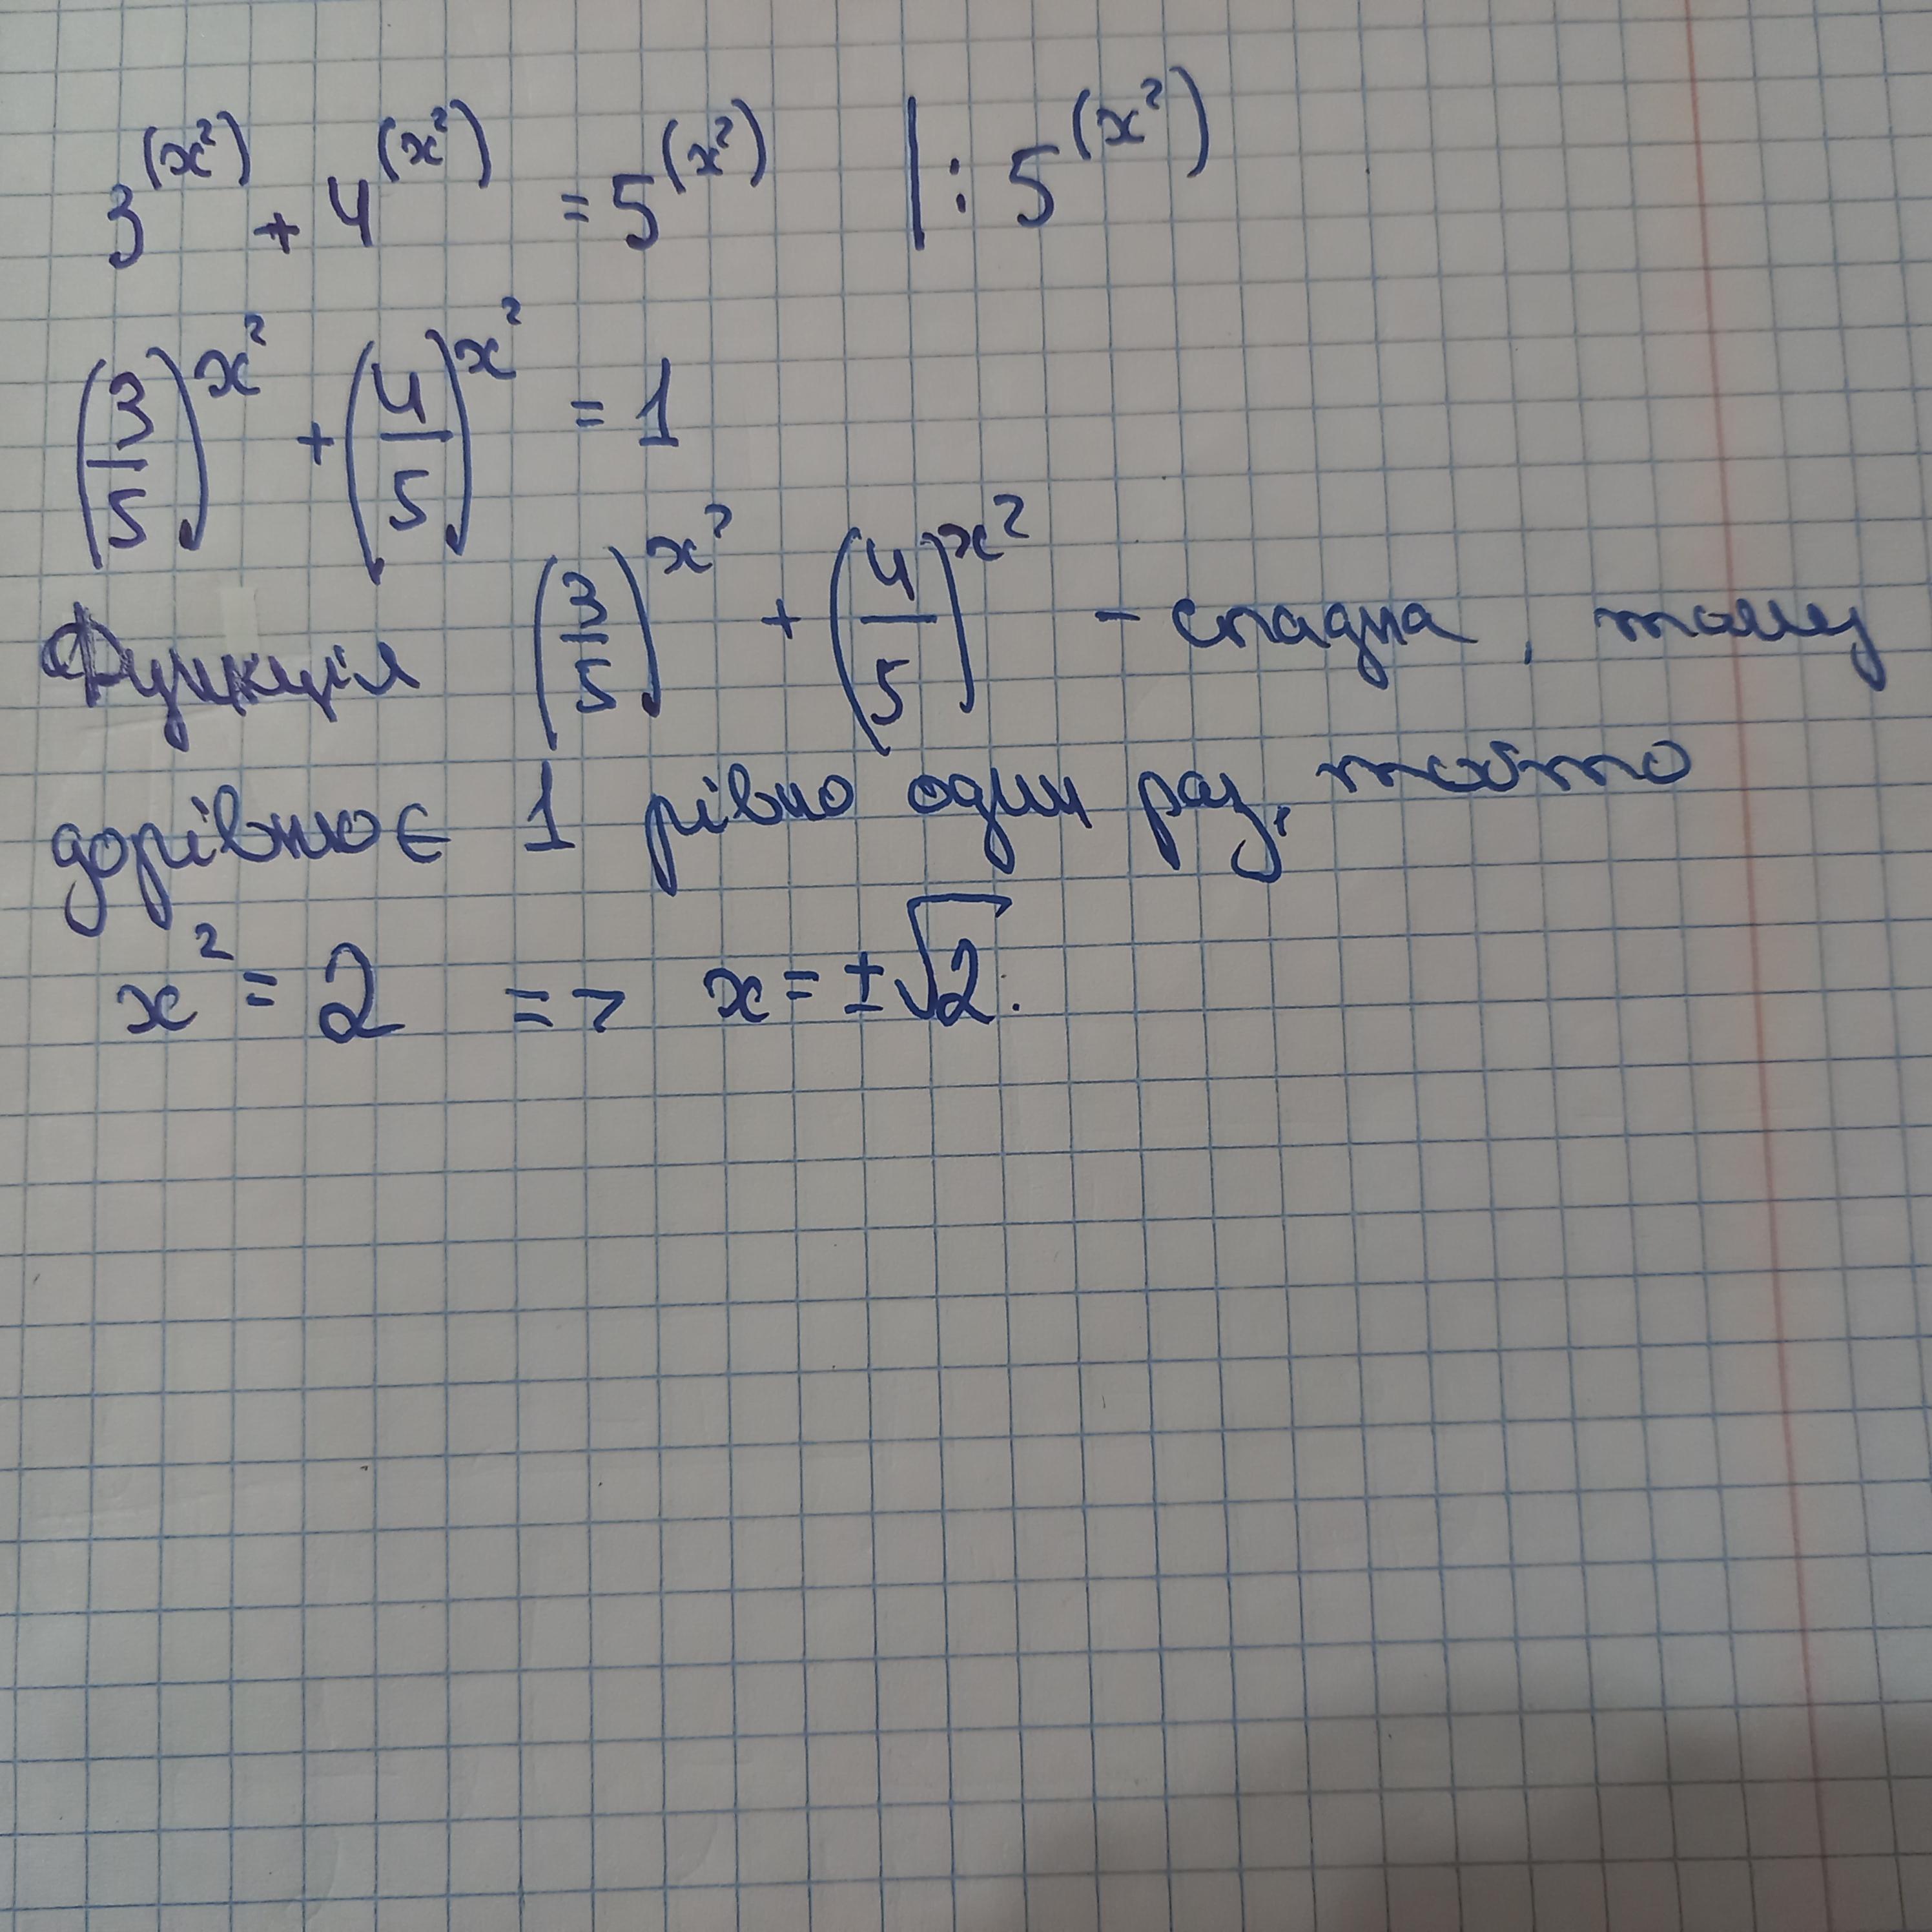 3^(x²) + 4^(x²) = 5^(x²) | : 5^(x²)
(3/5)^x² + (4/5)^x² = 1
Функція (3/5)^x² + (4/5)^x² - спадна, тому
дорівнює 1 рівно один раз, тобто
x² = 2 => x = ±√2.